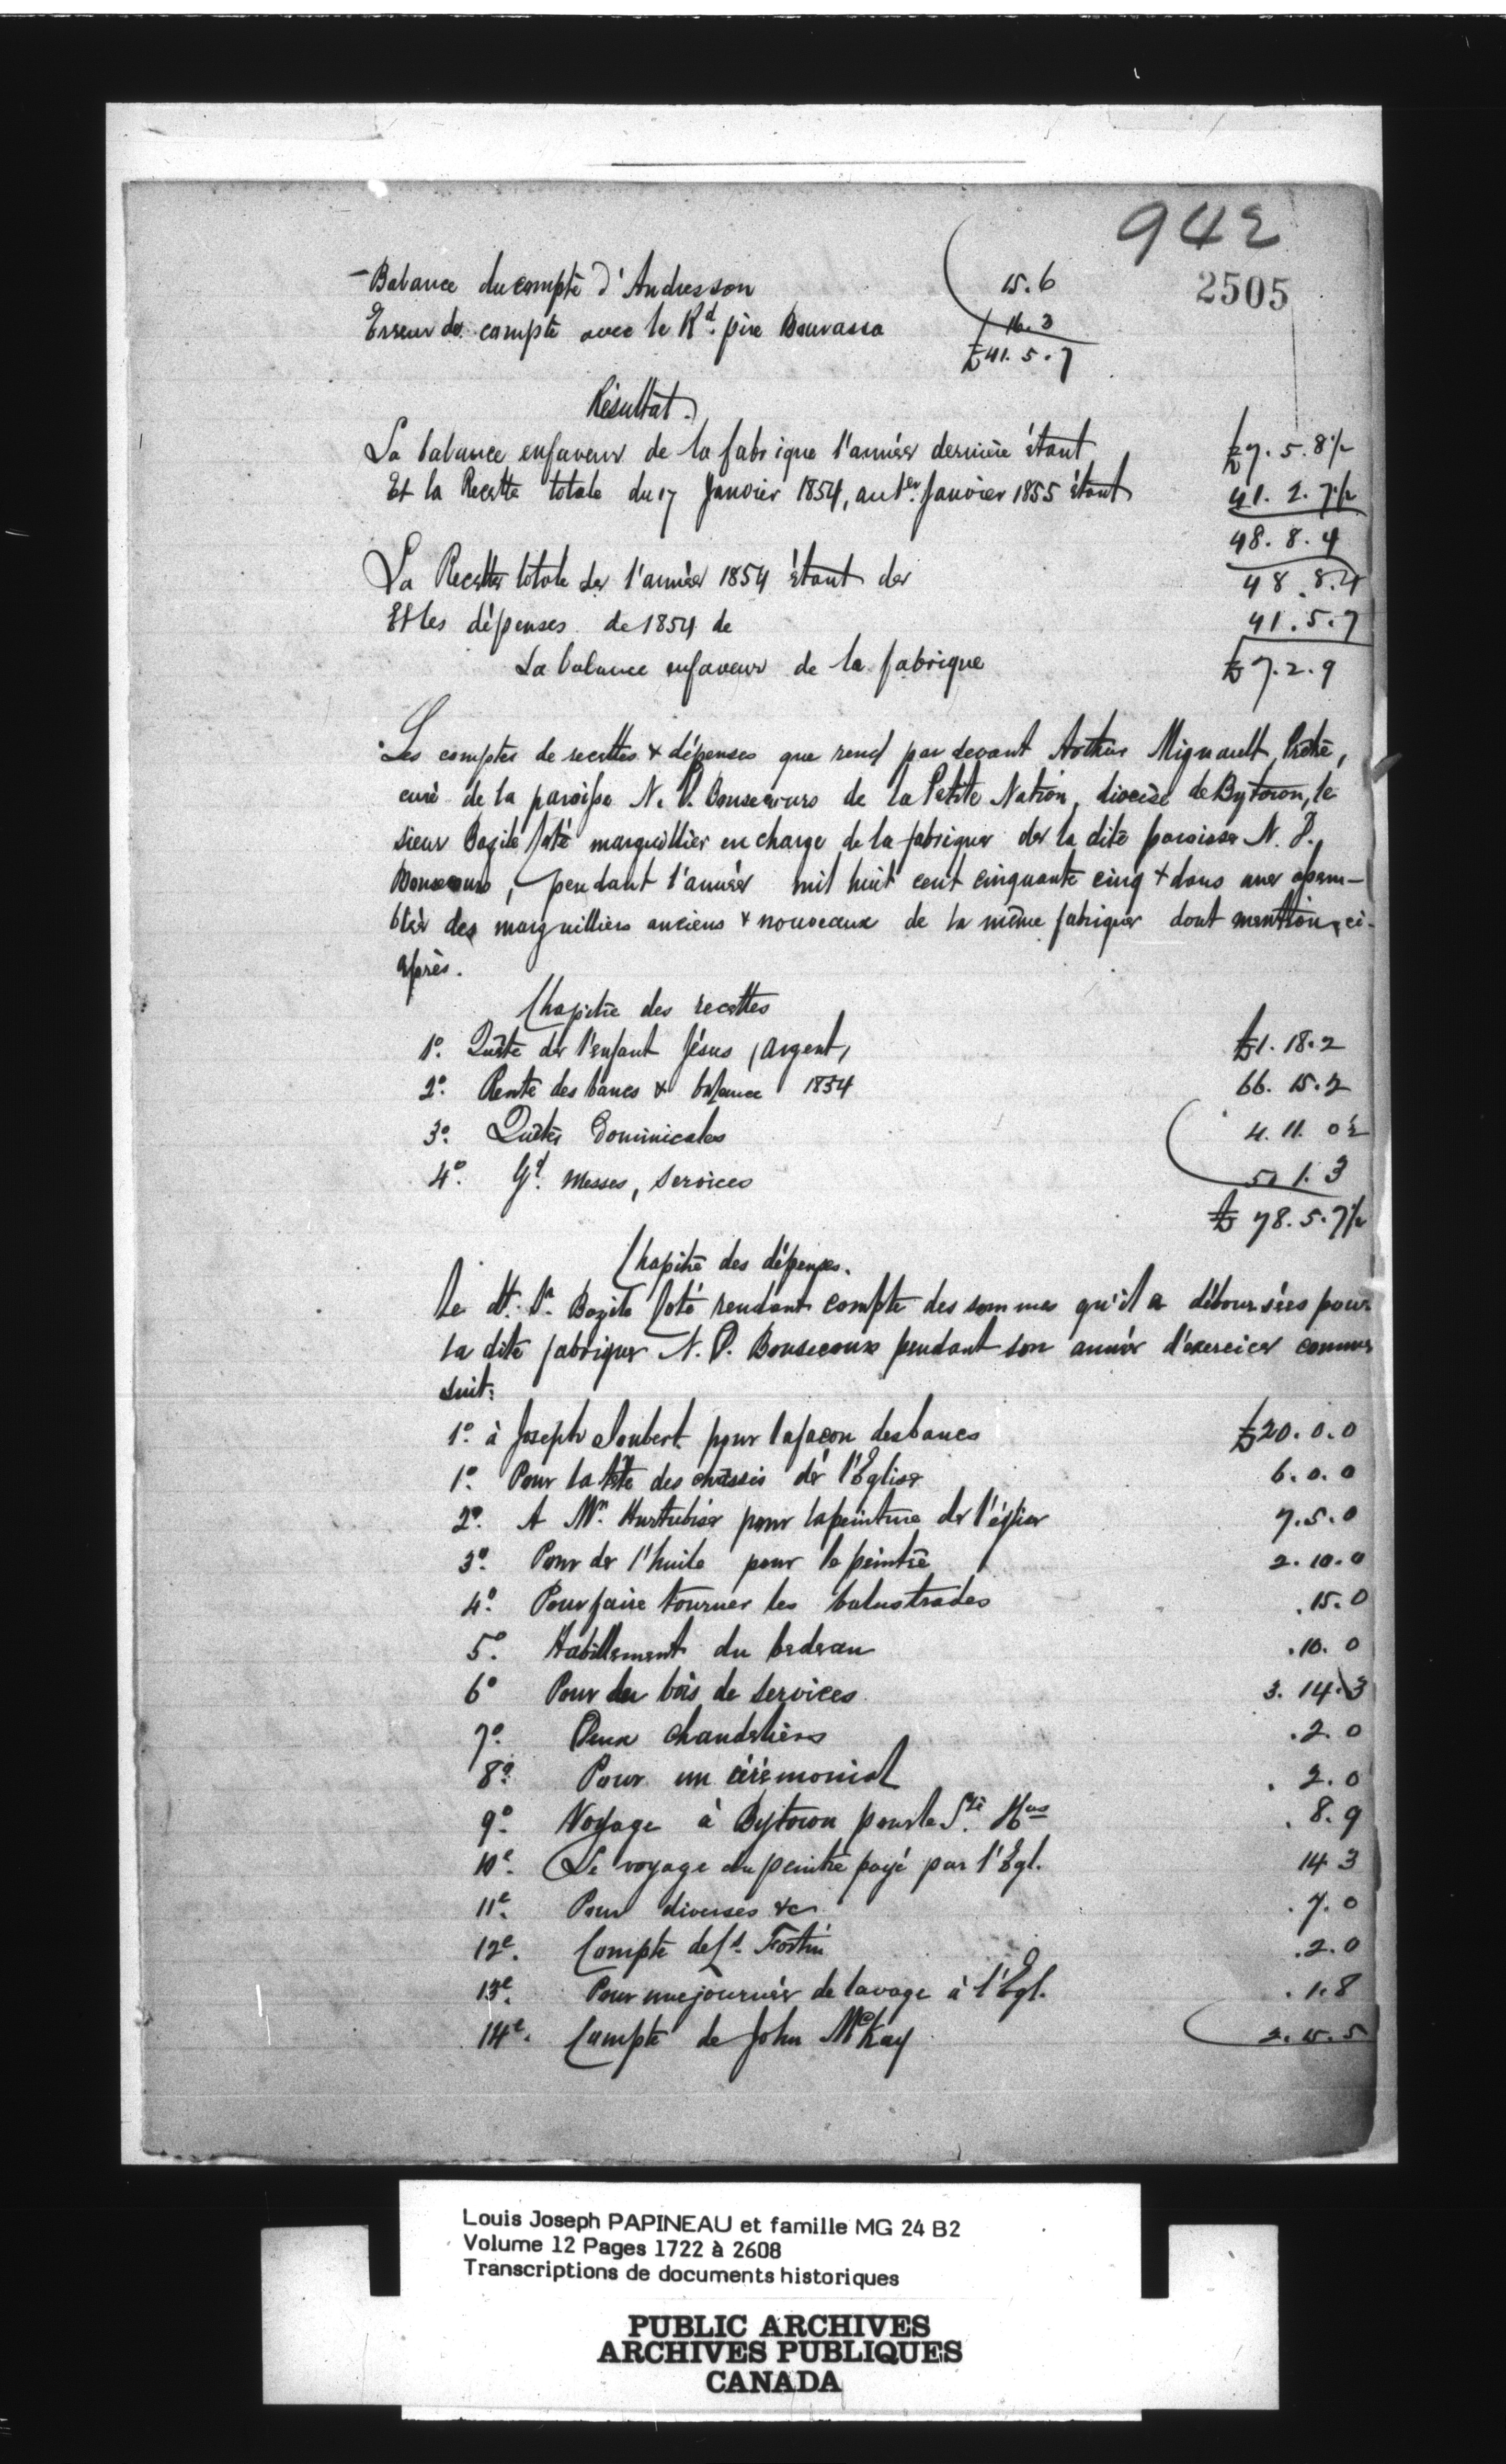 942
2505
- Balance du compte d'Andresson 15.6
Erreur de compte avec le Rd. père Bourassa 16.3
£41.5.7
Résultat.
La balance enfaveur de la fabrique l'année dernière étant £7.5.8½
Et la Recette totale du 17 Janvier 1854, au 1er. Janvier 1855 étant 41.2.7½
48.8.4
La Recette totale de l'année 1854 étant de 48.8.4
Et les dépenses de 1854 de 41.5.7
La balance enfaveur de la fabrique £7.2.9
Les comptes de recettes & dépenses que rend par devant Arthur Mignault, Prêtre,
curé de la paroisse N. D. Bonsecours de la Petite Nation, diocèse de Bytown, le
sieur Bazile Coté marguillier en charge de la fabrique de la dite paroisse N. D.
Bonsecours, pendant l'année mil huit cent cinquante cinq & dans une assem-
blée des marguilliers anciens & nouveaux de la même fabrique dont mention, ci-
après.
Chapitre des recettes
1o. Quête de l'enfant Jésus, argent, £1.18.2
2o. Rente des bancs & balance 1854 66.15.2
3o. Quêtes Dominicales 4.11.0½
4o. Gd. Messes, services 5.1.3
£78.5.7½
Chapitre des dépenses.
Le dt. Sr. Bazile Coté rendant compte des sommes qu'il a déboursées pour
la dite fabrique N. D. Bonsecours pendant son année d'exercice comme
suit:
1o. à Joseph Joubert pour la façon des bancs £20.0.0
1o. Pour la tête des chassis de l'Eglise 6.0.0
2o. A Mr. Hurtubise pour la peinture de l'église 7.5.0
3o. Pour de l'huile pour le peintre 2.10.0
4o. Pour faire tourner les balustrades .15.0
5o. Habillement du bedeau .10.0
6o Pour du bois de services 3.14.3
7o. Deux chandeliers .2.0
8o. Pour un cérémonial .2.0
9o. Voyage à Bytown pour les Stes Hles .8.9
10e. Le voyage du peintre payé par l'Egl. 14 3
11e. Pour diverses &c .7.0
12e. Compte de Ls. Fortin .2.0
13e. Pour une journée de lavage à l'Egl. .1.8
14e. Compte de John McKay 2.15.5
Louis Joseph PAPINEAU et famille MG 24 B2
Volume 12 Pages 1722 à 2608
Transcriptions de documents historiques
PUBLIC ARCHIVES
ARCHIVES PUBLIQUES
CANADA